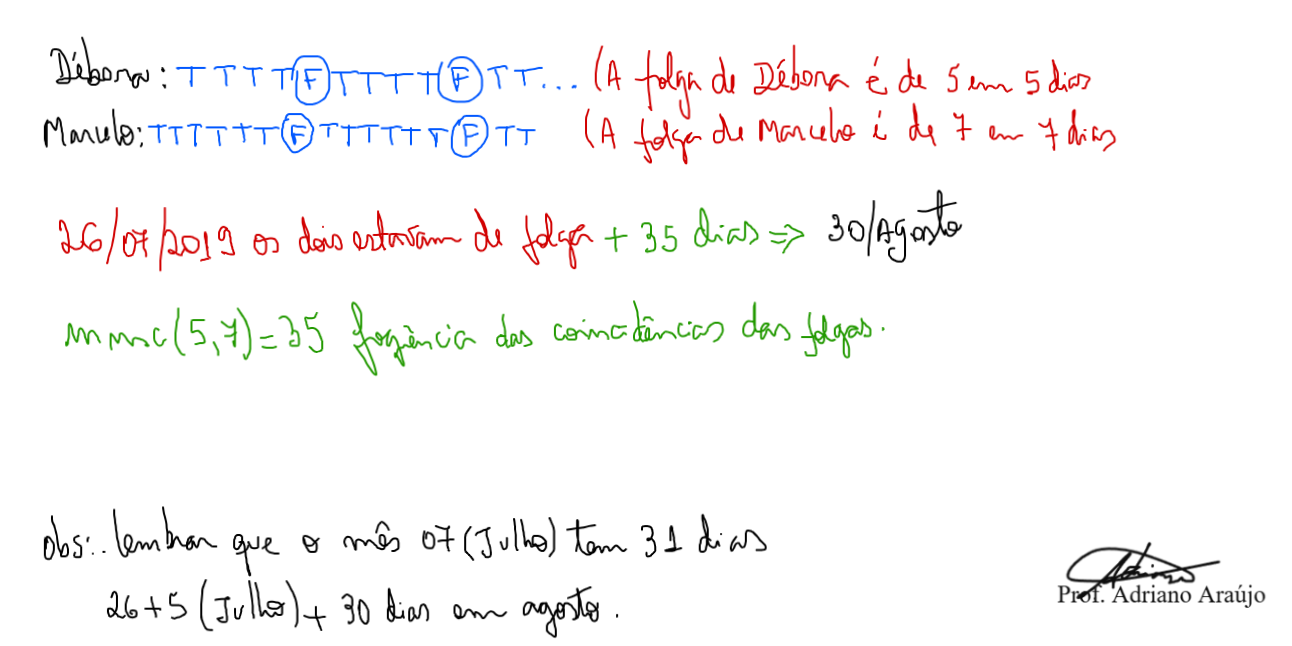 Débora: TTTTFTTTTFTT... (A folga de Débora é de 5 em 5 dias
Marcelo: TTTTTTFTTTTTTFTT (A folga de Marcelo é de 7 em 7 dias
26/07/2019 os dois estavam de folga + 35 dias => 30/Agosto
mmc(5,7)=35 freqüência das coincidências das folgas.
obs:. lembrar que o mês 07 (Julho) tem 31 dias
26+5 (Julho) + 30 dias em agosto.
Prof. Adriano Araújo